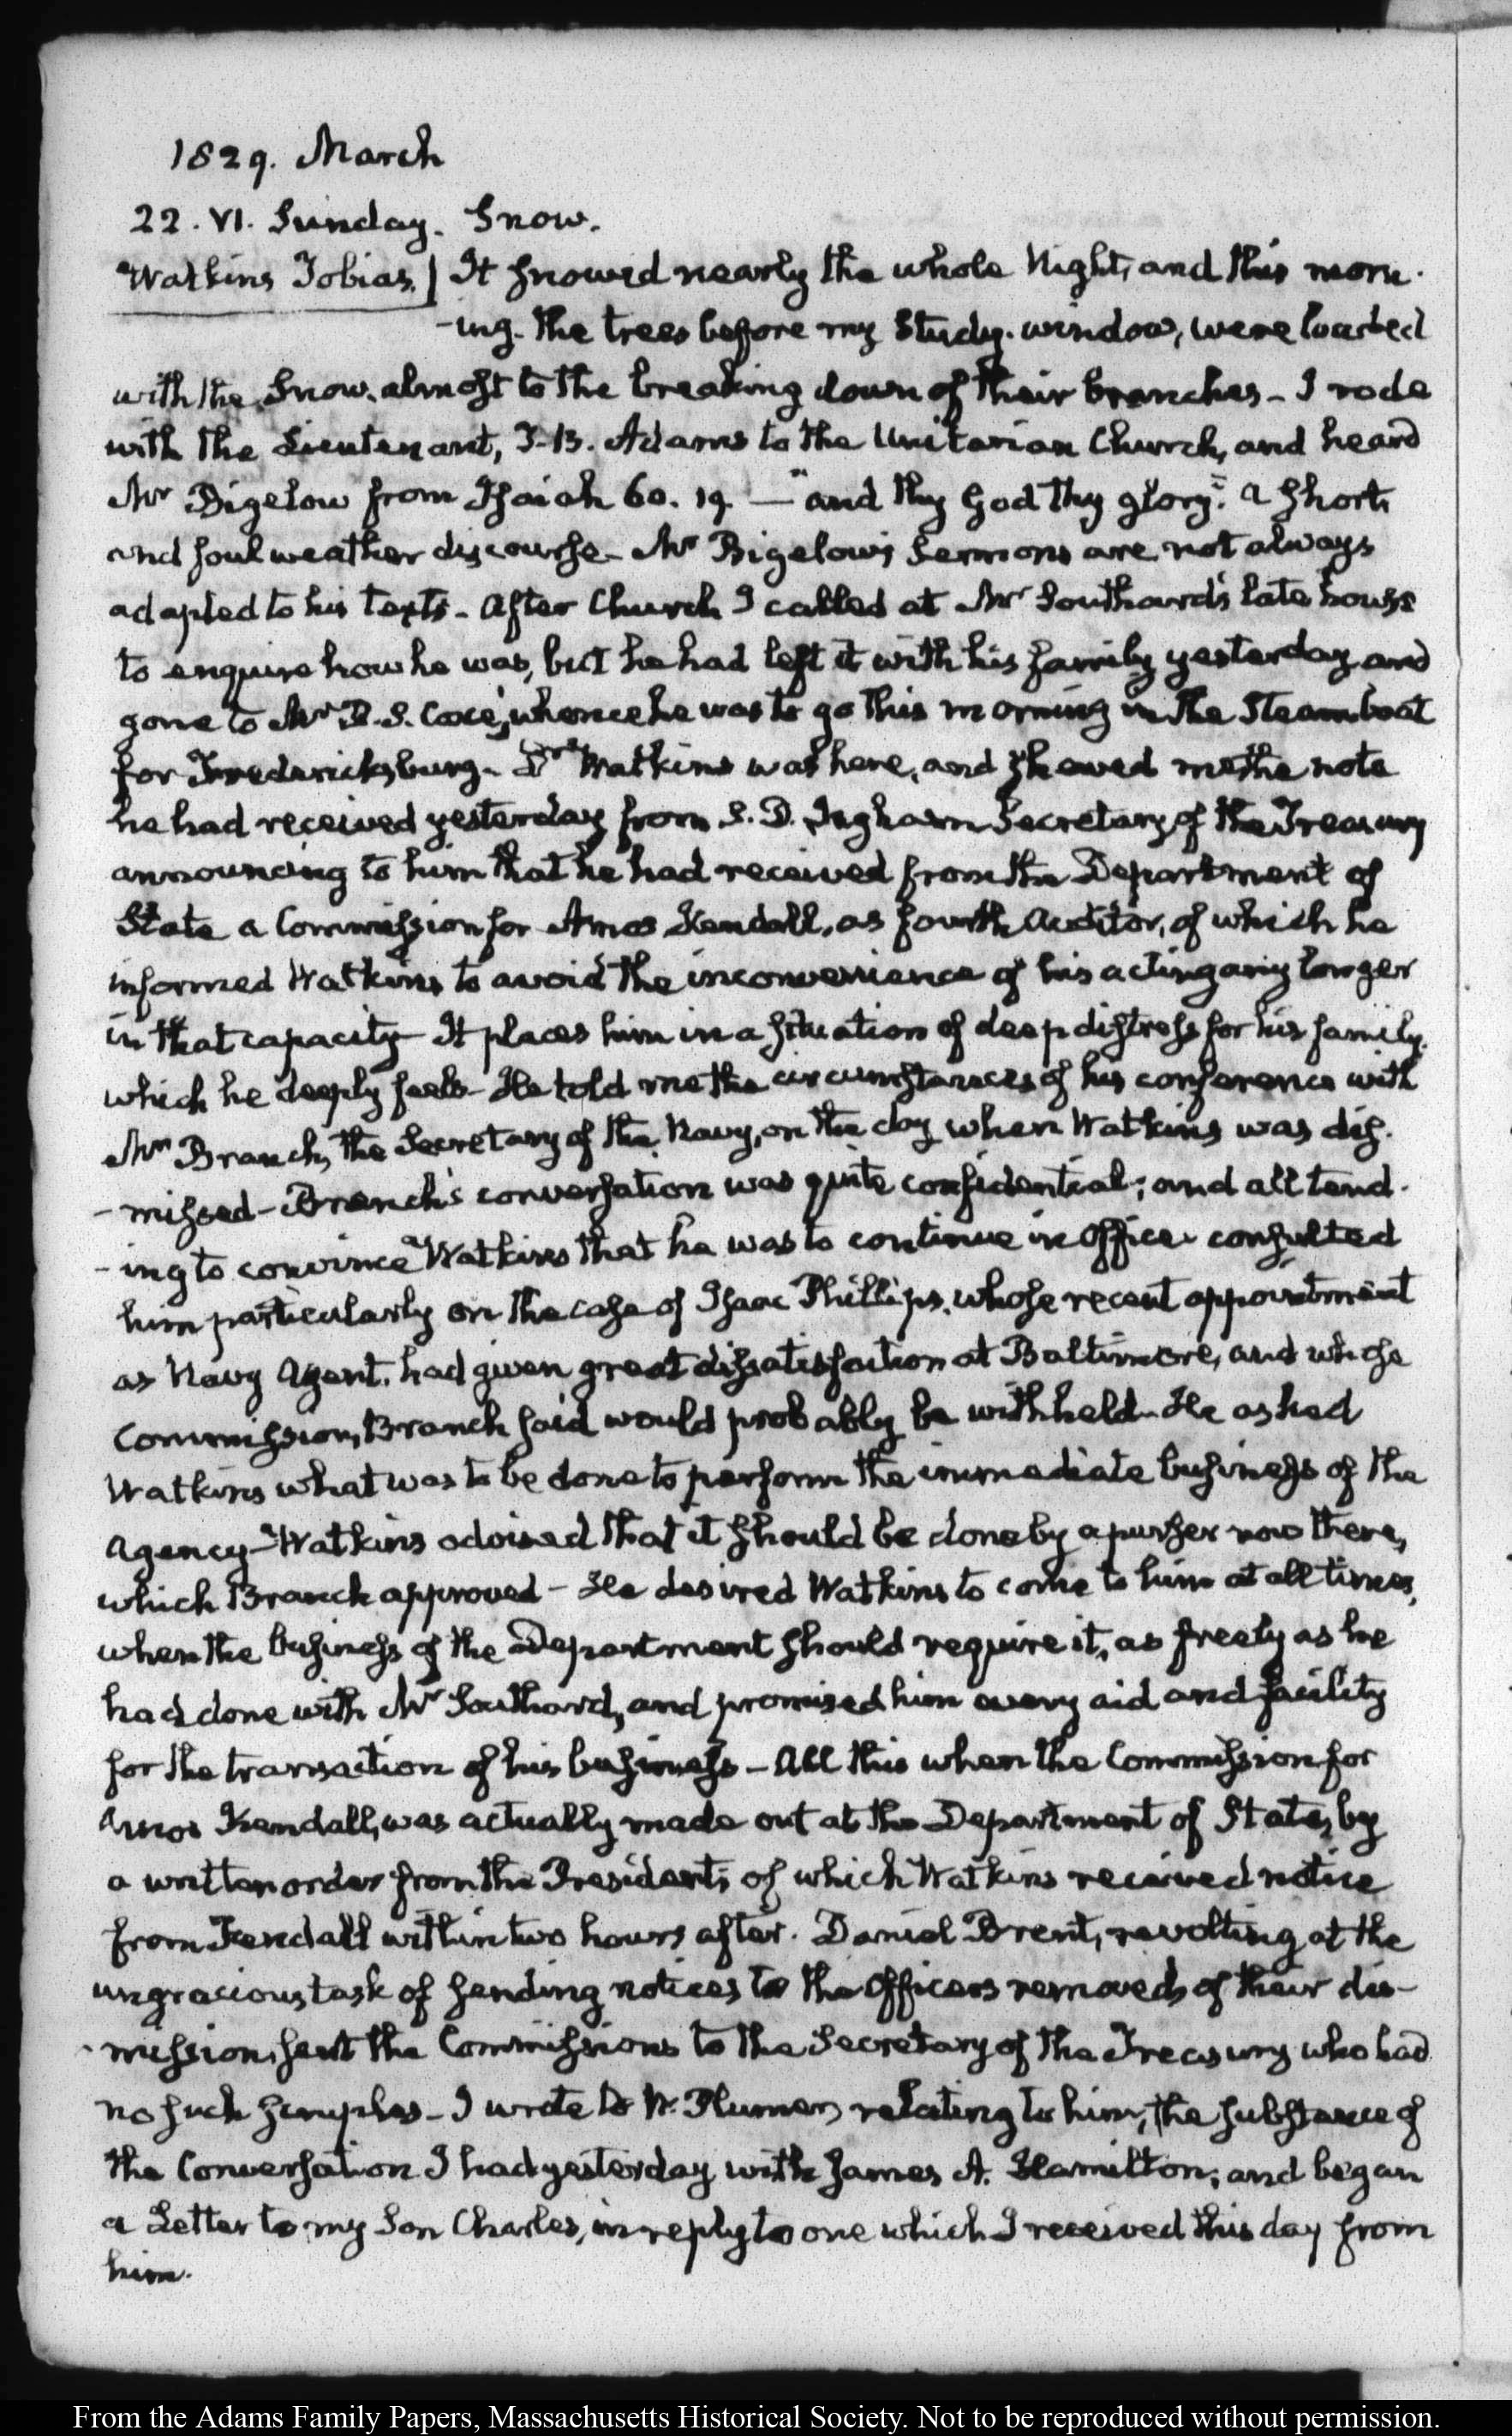 1829. March
22. VI. Sunday. Snow.
Watkins Tobias. | It snowed nearly the whole Night, and this morn-
-ing. The trees before my Study-window, were loaded
with the Snow, almost to the breaking down of their branches - I rode
with the Lieutenant, T-B. Adams to the Unitarian Church, and heard
Mr Bigelow from Isaiah 60. 19. — "and thy God thy glory." A short
and foul weather discourse - Mr Bigelow's Sermons are not always
adapted to his texts - After Church I called at Mr Southard's late house
to enquire how he was, but he had left it with his family yesterday and
gone to Mr R. S. Coxe's, whence he was to go this morning in the Steam boat
for Fredericksburg - Dr Watkins was here, and shewed me the note
he had received yesterday from S. D. Ingham Secretary of the Treasury
announcing to him that he had received from the Department of
State a Commission for Amos Kendall, as fourth Auditor, of which he
informed Watkins to avoid the inconvenience of his acting any longer
in that capacity - It places him in a situation of deep distress for his family,
which he deeply feels - He told me the circumstances of his conference with
Mr Branch, the Secretary of the Navy, on the day when Watkins was dis-
-missed - Branch's conversation was quite confidential; and all tend-
-ing to convince Watkins that he was to continue in Office - consulted
him particularly on the case of Isaac Phillips, whose recent appointment
as Navy Agent, had given great dissatisfaction at Baltimore, and whose
Commission, Branch said would probably be withheld - He asked
Watkins what was to be done to perform the immediate business of the
Agency - Watkins advised that it should be done by a purser now there,
which Branch approved - He desired Watkins to come to him at all times,
when the business of the Department should require it, as freely as he
had done with Mr Southard, and promised him every aid and facility
for the transaction of his business - All this when the Commission for
Amos Kendall, was actually made out at the Department of State, by
a written order from the President; of which Watkins received notice
from Kendall within two hours after. Daniel Brent, revolting at the
ungracious task of sending notices to the Officers removed, of their dis-
-mission, sent the Commissions to the Secretary of the Treasury who had
no such scruples - I wrote to W. Plumer, relating to him, the substance of
the Conversation I had yesterday with James A. Hamilton; and began
a Letter to my Son Charles, in reply to one which I received this day from
him.
From the Adams Family Papers, Massachusetts Historical Society. Not to be reproduced without permission.